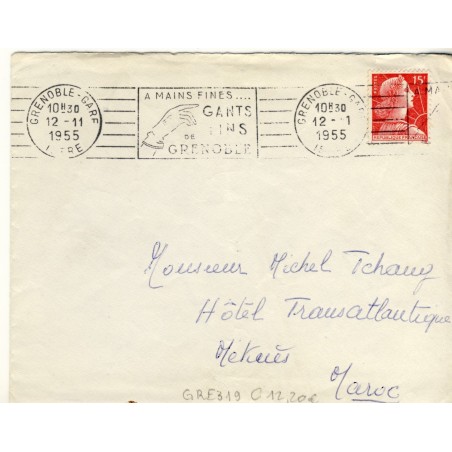 GRENOBLE-GARE
10H30
12-11
1955
ISERE
A MAINS FINES....
GANTS
FINS
DE
GRENOBLE
GRENOBLE-GARE
10H30
12- -1
1955
15F
POSTES
REPUBLIQUE FRANÇAISE
A MA
Monsieur Michel Tchang
Hôtel Transatlantique
Meknès
Maroc
GRE319 C 12,20€